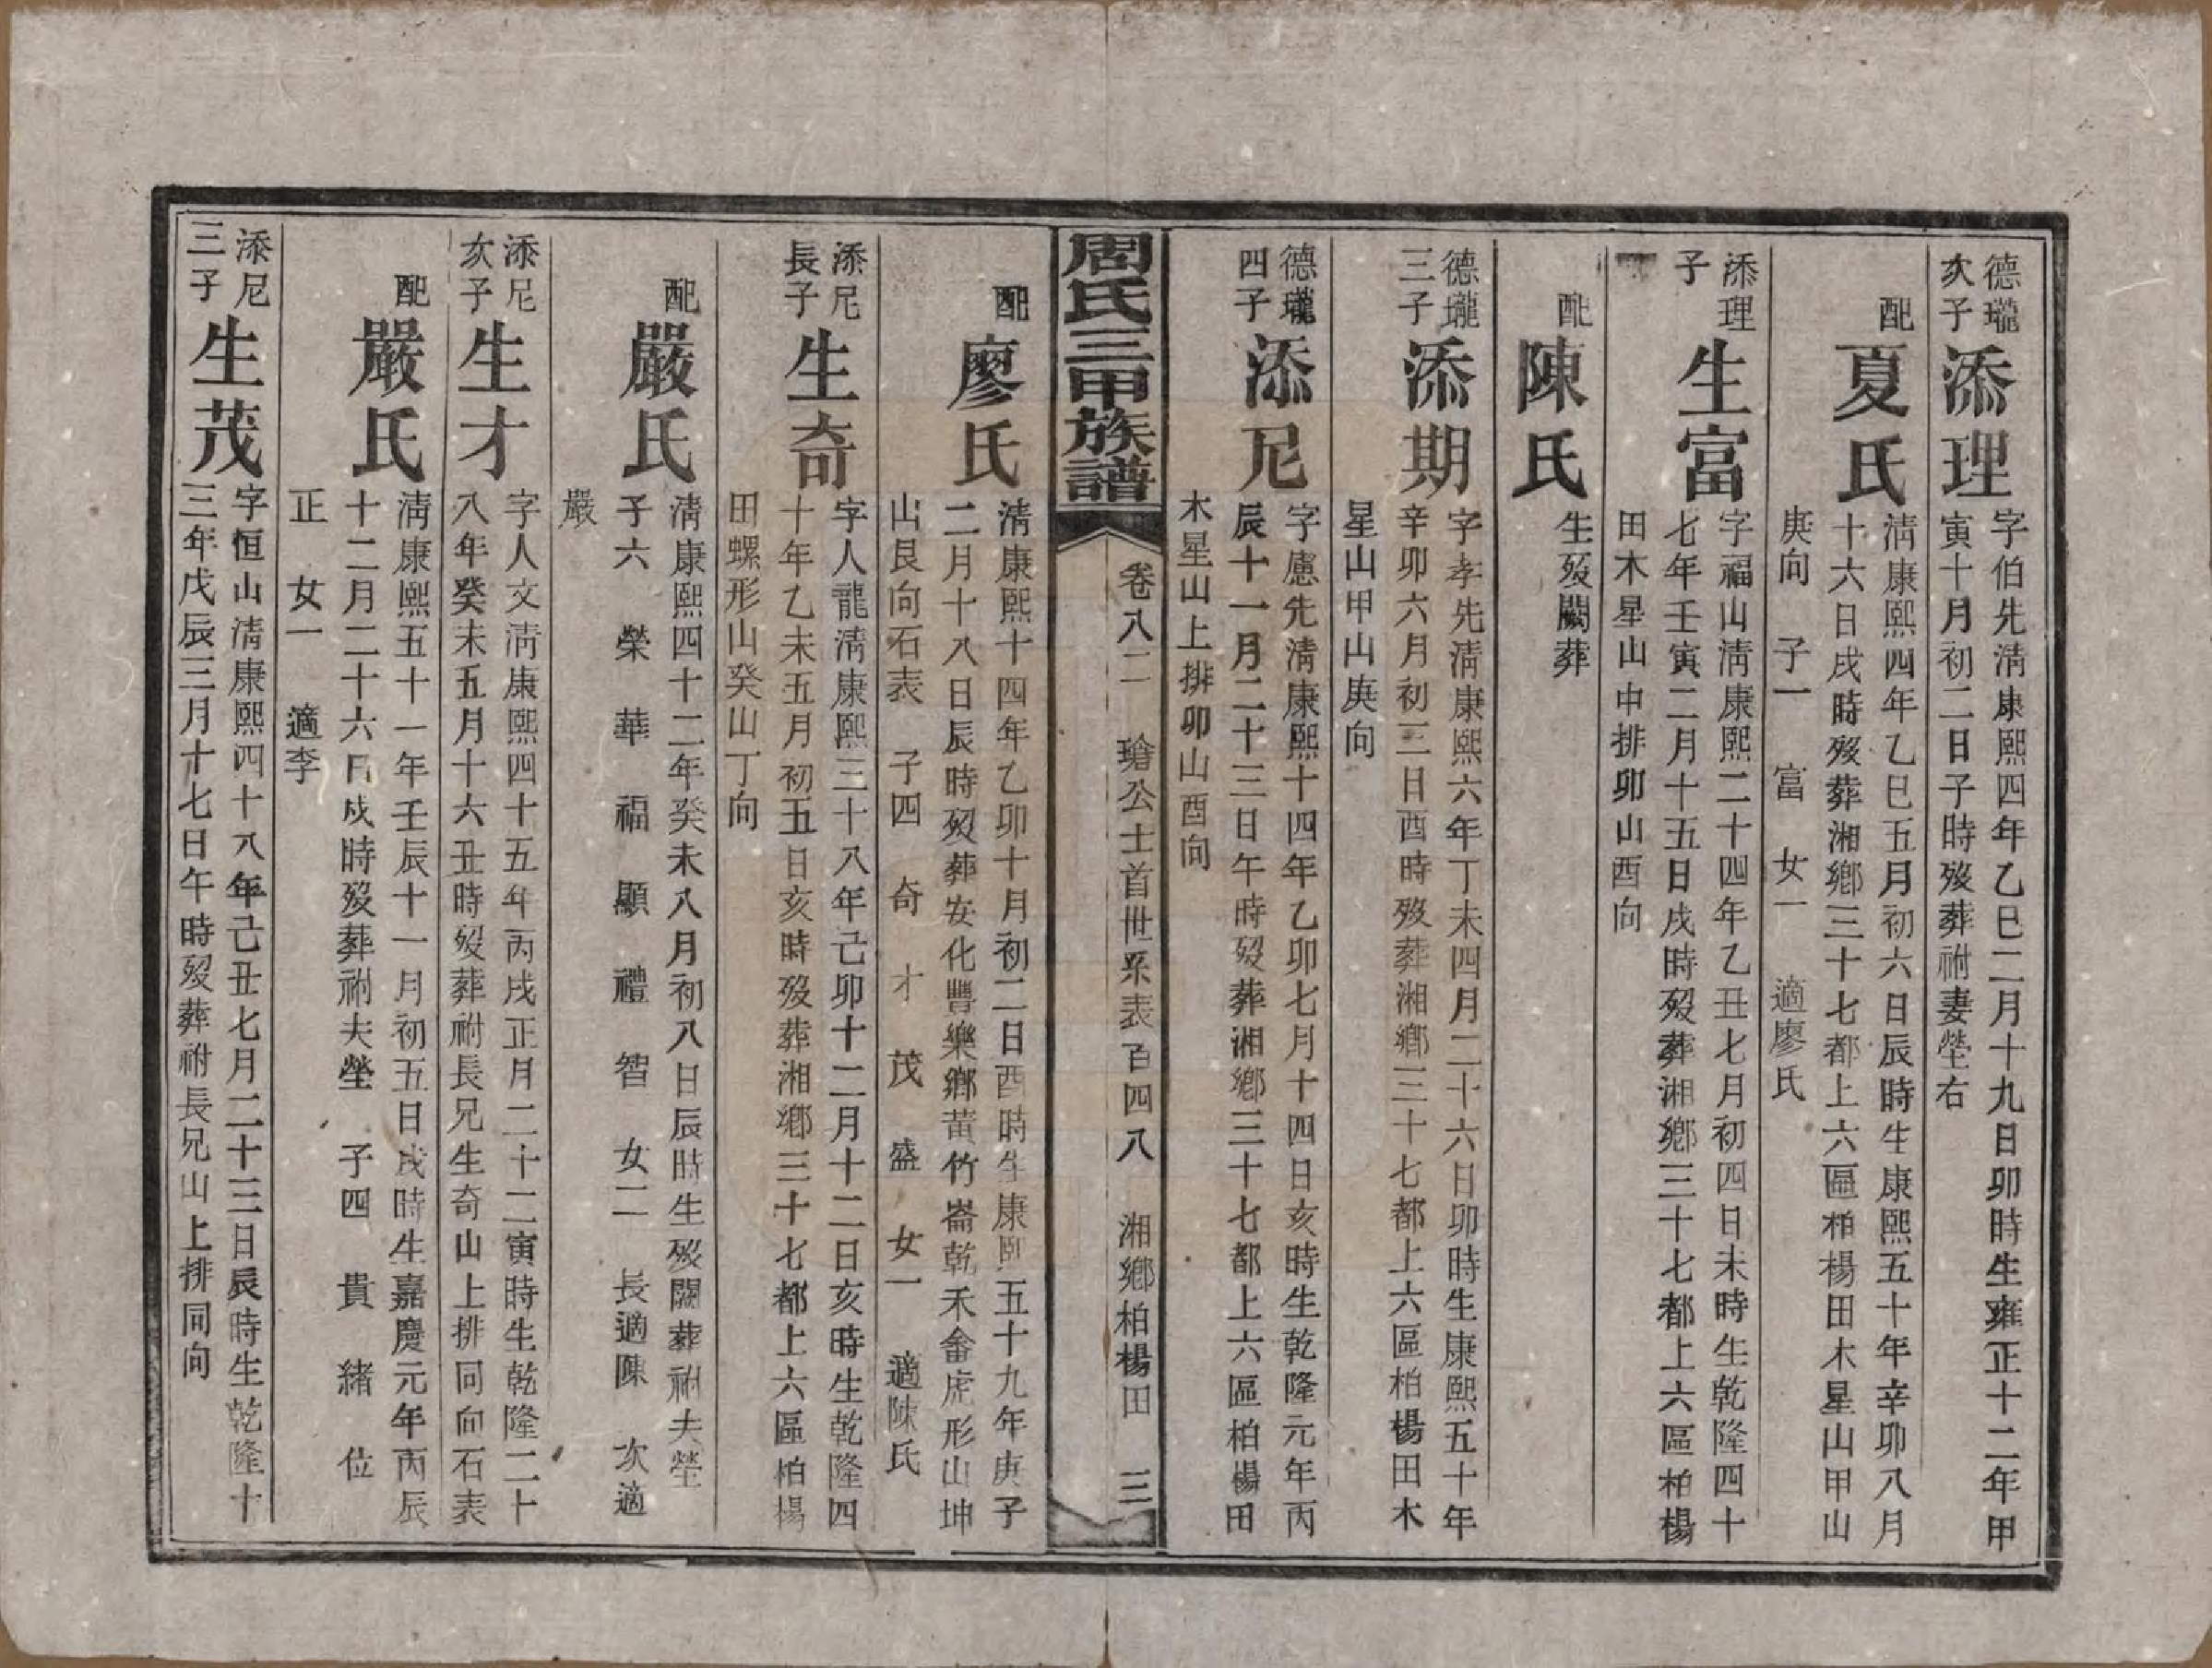 德瓏
次子
添理
字伯先淸康熙四年乙巳二月十九日卯時生雍正十二年甲
寅十月初二日子時歿葬祔妻塋右
配
夏氏
淸康熙四年乙巳五月初六日辰時生康熙五十年辛卯八月
十六日戌時歿葬湘鄕三十七都上六區柏楊田木星山甲山
庚向 子一 富 女一 適廖氏
添理
子
生富
字福山淸康熙二十四年乙丑七月初四日未時生乾隆四十
七年壬寅二月十五日戌時歿葬湘鄕三十七都上六區柏楊
田木星山中排卯山酉向
配
陳氏
生歿闕葬
德瓏
三子
添期
字孝先淸康熙六年丁未四月二十六日卯時生康熙五十年
辛卯六月初三日酉時歿葬湘鄕三十七都上六區柏楊田木
星山甲山庚向
德瓏
四子
添尼
字慮先淸康熙十四年乙卯七月十四日亥時生乾隆元年丙
辰十一月二十三日午時歿葬湘鄕三十七都上六區柏楊田
木星山上排卯山酉向
周氏三甲族譜
卷八二 瑲公士首世系表 百四八 湘鄕柏楊田 三
配
廖氏
淸康熙十四年乙卯十月初二日酉時生康熙五十九年庚子
二月十八日辰時歿葬安化豐樂鄕黃竹崙乾禾畬虎形山坤
山艮向石表 子四 奇 才 茂 盛 女一 適陳氏
添尼
長子
生奇
字人龍淸康熙三十八年己卯十二月十二日亥時生乾隆四
十年乙未五月初五日亥時歿葬湘鄕三十七都上六區柏楊
田螺形山癸山丁向
配
嚴氏
淸康熙四十二年癸未八月初八日辰時生歿闕葬祔夫塋
子六 榮 華 福 顯 禮 智 女二 長適陳 次適
嚴
添尼
次子
生才
字人文淸康熙四十五年丙戌正月二十二寅時生乾隆二十
八年癸未五月十六丑時歿葬祔長兄生奇山上排同向石表
配
嚴氏
淸康熙五十一年壬辰十一月初五日戌時生嘉慶元年丙辰
十二月二十六日戌時歿葬祔夫塋 子四 貴 緒 位
正 女一 適李
添尼
三子
生茂
字恒山淸康熙四十八年己丑七月二十三日辰時生乾隆十
三年戊辰三月十七日午時歿葬祔長兄山上排同向